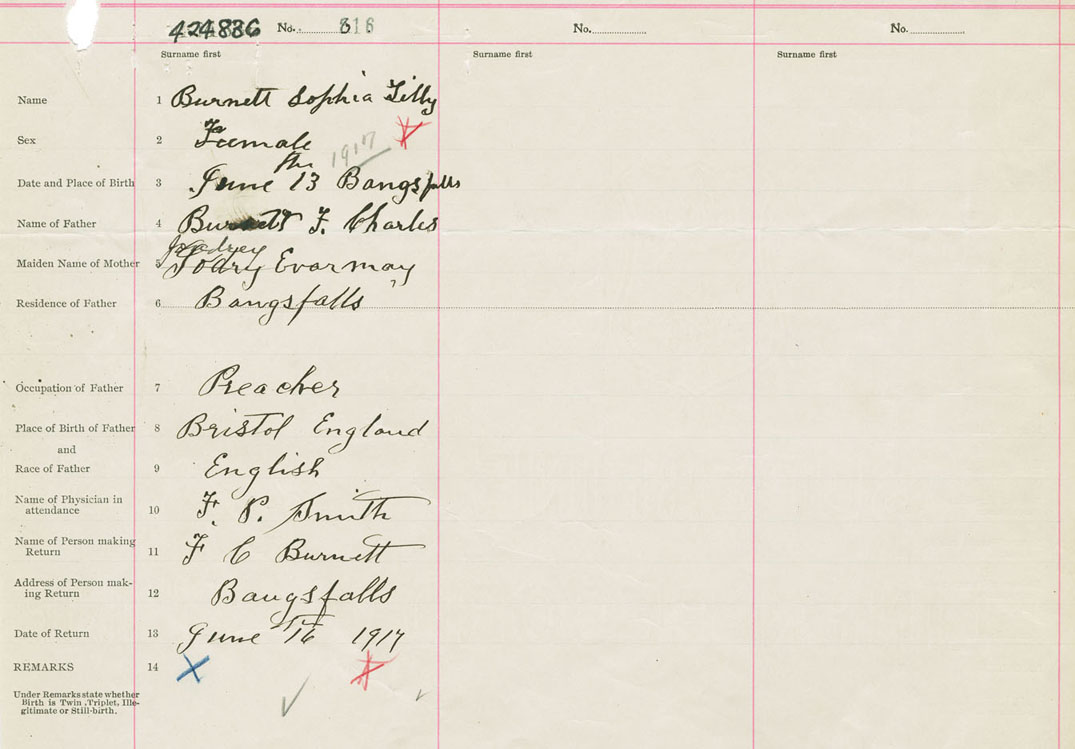 424836 No. 316 No. No.
Surname first Surname first Surname first
Name 1 Burnett Sophia Tilly
Sex 2 Female
1917
th
Date and Place of Birth 3 June 13 Bangsfalls
Name of Father 4 Burnett F. Charles
Maiden Name of Mother 5 Evarmay
Residence of Father 6 Bangsfalls
Occupation of Father 7 Preacher
Place of Birth of Father 8 Bristol England
and
Race of Father 9 English
Name of Physician in
attendance 10 F. P. Smith
Name of Person making
Return 11 F C Burnett
Address of Person mak-
ing Return 12 Bangsfalls
Date of Return 13 June 16 1917
REMARKS 14
Under Remarks state whether
Birth is Twin, Triplet, Ille-
gitimate or Still-birth.